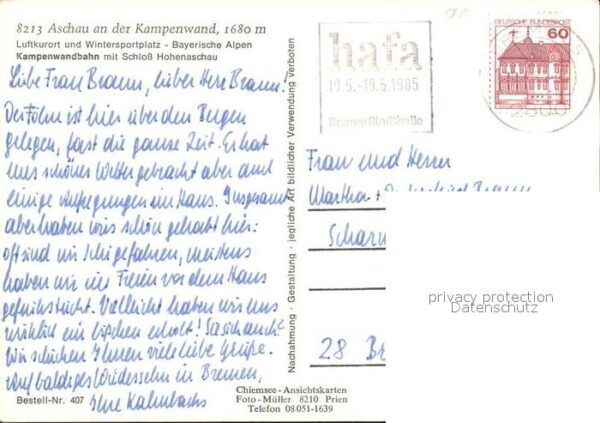 8213 Aschau an der Kampenwand, 1680 m
Luftkurort und Wintersportplatz - Bayerische Alpen
Kampenwandbahn mit Schloß Hohenaschau
Liebe Frau Braun, lieber Herr Braun.
Der Föhn ist hier über den Bergen
gelegen, fast die ganze Zeit. Er hat
uns schönes Wetter gebracht aber auch
einige Aufregungen im Haus. Insgesamt
aber haben wir's schön gehabt hier:
oft sind wir Schi gefahren, meistens
haben wir im Freien vor dem Haus
gefrühstückt. Vielleicht haben wir uns
wirklich ein bischen erholt!
Wir schicken Ihnen viele liebe Grüße.
Auf baldiges Wiedersehn in Bremen,
Ihre Kalmbachs
Bestell-Nr. 407
Nachahmung - Gestaltung - jegliche Art bildlicher Verwendung verboten
Chiemsee-Ansichtskarten
Foto-Müller 8210 Prien
Telefon 08051-1639
hafa
19.5.1985
Bremen Stadthalle
DEUTSCHE BUNDESPOST
60
2800
Frau und Herrn
Martha +
Scharn
28 Br
privacy protection
Datenschutz